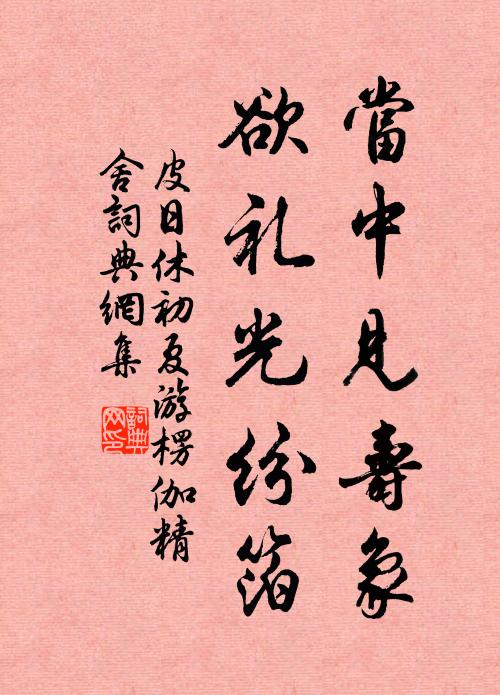 當中見壽象
欲礼光紛箔
皮日休初夏游楞伽精
舍詞典網集
詞典
网印